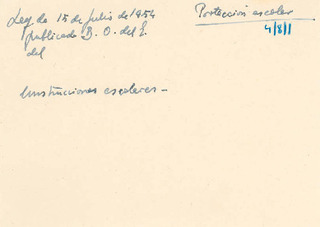 Ley de 15 de Julio de 1954
publicada B. O. del E.
del
Protección escolar
4/8/1
Construcciones escolares -